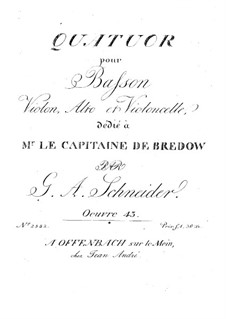 QUATUOR
pour
Basson
Violon, Alto et Violoncelle,
dedié à
Mr. LE CAPITAINE DE BREDOW
PAR
G. A. Schneider.
Oeuvre 43.
A OFFENBACH sur le Mein,
chez Jean André.